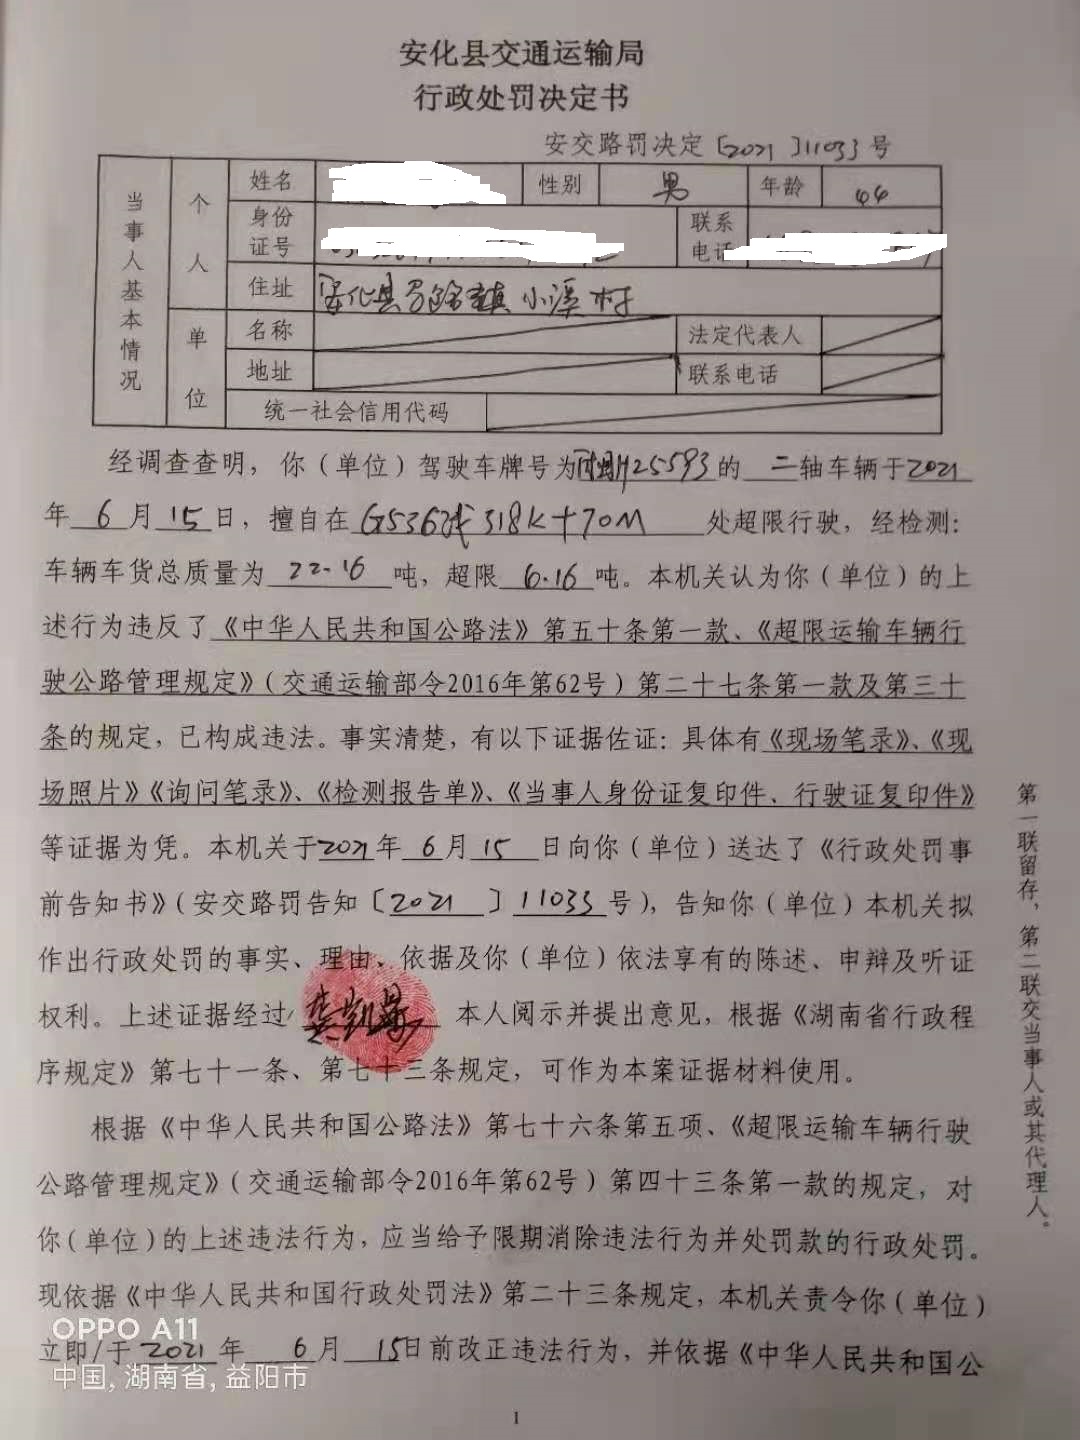 安化县交通运输局
行政处罚决定书
安交路罚决定〔2021〕11033号
当事人基本情况
个人
姓名
性别 男 年龄 44
身份证号
联系电话
住址 安化县马路镇小溪村
单位
名称 法定代表人
地址 联系电话
统一社会信用代码
经调查查明，你（单位）驾驶车牌号为湘H25593的 二轴车辆于2021
年 6 月 15 日，擅自在 G536线318K+70M 处超限行驶，经检测：
车辆车货总质量为 22.16 吨，超限 6.16 吨。本机关认为你（单位）的上
述行为违反了《中华人民共和国公路法》第五十条第一款、《超限运输车辆行
驶公路管理规定》（交通运输部令2016年第62号）第二十七条第一款及第三十
条的规定，已构成违法。事实清楚，有以下证据佐证：具体有《现场笔录》、《现
场照片》《询问笔录》、《检测报告单》、《当事人身份证复印件、行驶证复印件》
等证据为凭。本机关于2021年 6月 15 日向你（单位）送达了《行政处罚事
前告知书》（安交路罚告知〔2021〕11033号），告知你（单位）本机关拟
作出行政处罚的事实、理由、依据及你（单位）依法享有的陈述、申辩及听证
权利。上述证据经过 本人阅示并提出意见，根据《湖南省行政程
序规定》第七十一条、第七十三条规定，可作为本案证据材料使用。
根据《中华人民共和国公路法》第七十六条第五项、《超限运输车辆行驶
公路管理规定》（交通运输部令2016年第62号）第四十三条第一款的规定，对
你（单位）的上述违法行为，应当给予限期消除违法行为并处罚款的行政处罚。
现依据《中华人民共和国行政处罚法》第二十三条规定，本机关责令你（单位）
立即/于 2021 年 6月 15日前改正违法行为，并依据《中华人民共和国公
第一联留存，第二联交当事人或其代理人。
OPPO A11
中国, 湖南省, 益阳市
1